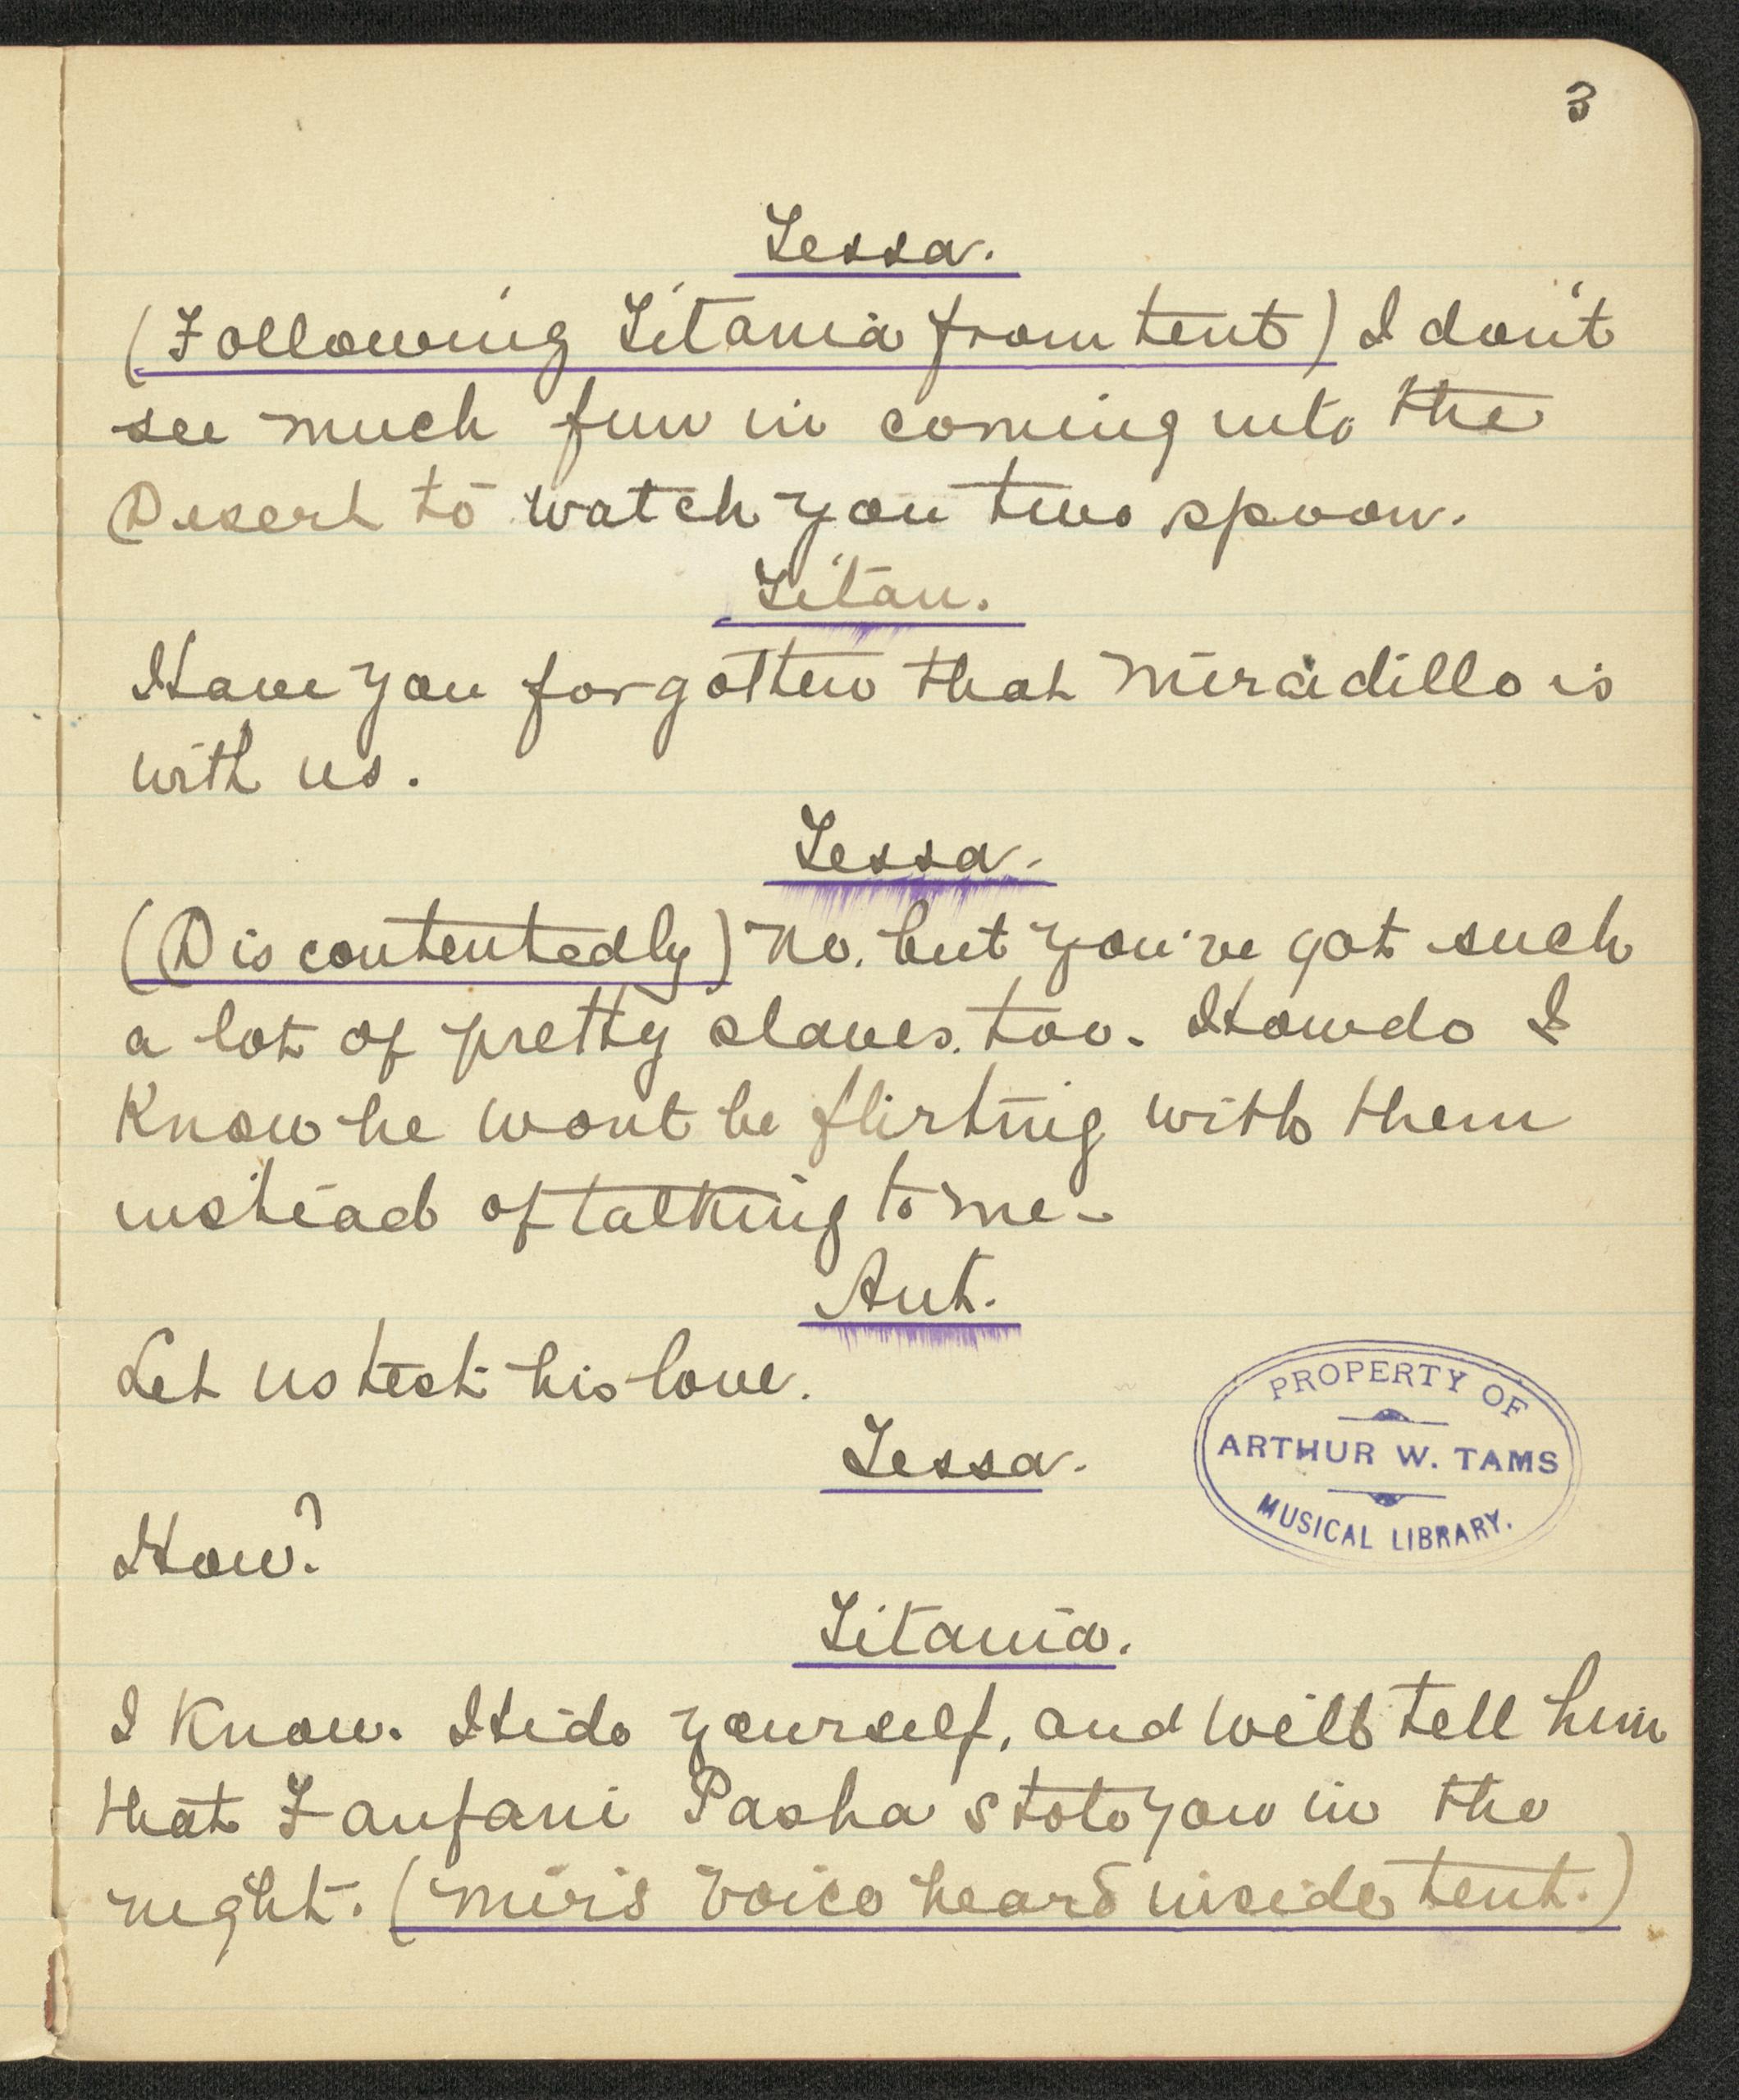 3
Tessa.
(Following Titania from tent) I don't
see much fun in coming into the
Desert to watch you two spoon.
Titan.
Have you forgotten that Miradillo is
with us.
Tessa.
(Discontentedly) No. but you've got such
a lot of pretty slaves. too. How do I
Know he wont be flirting with them
instead of talking to me.
Ant.
Let us test his love.
Tessa.
How?
PROPERTY OF
ARTHUR W. TAMS
MUSICAL LIBRARY.
Titania.
I Know. Hide yourself, and we'll tell him
that Fanfani Pasha stole you in the
night. (Mir's voice heard inside tent.)